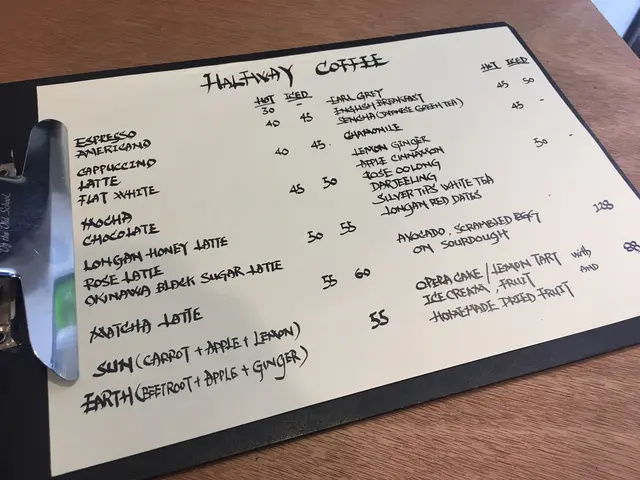 HALFWAY COFFEE
HOT ICED
ESPRESSO 30 -
AMERICANO 40 45
CAPPUCCINO
LATTE 40 45
FLAT WHITE
MOCHA 45 50
CHOCOLATE
LONGAN HONEY LATTE
ROSE LATTE 50 55
OKINAWA BLACK SUGAR LATTE
MATCHA LATTE 55 60
SUN (CARROT + APPLE + LEMON) 55
EARTH (BEETROOT + APPLE + GINGER)
HOT ICED
EARL GREY 45 50
ENGLISH BREAKFAST
SENCHA (JAPANESE GREEN TEA) 45 -
CHAMOMILE
LEMON GINGER 50 -
APPLE CINNAMON
ROSE OOLONG
DARJEELING
SILVER TIPS WHITE TEA
LONGAN RED DATES
AVOCADO, SCRAMBLED EGG 128
ON SOURDOUGH
OPERA CAKE / LEMON TART with 88
ICE CREAM, FRUIT AND
HOMEMADE DRIED FRUIT